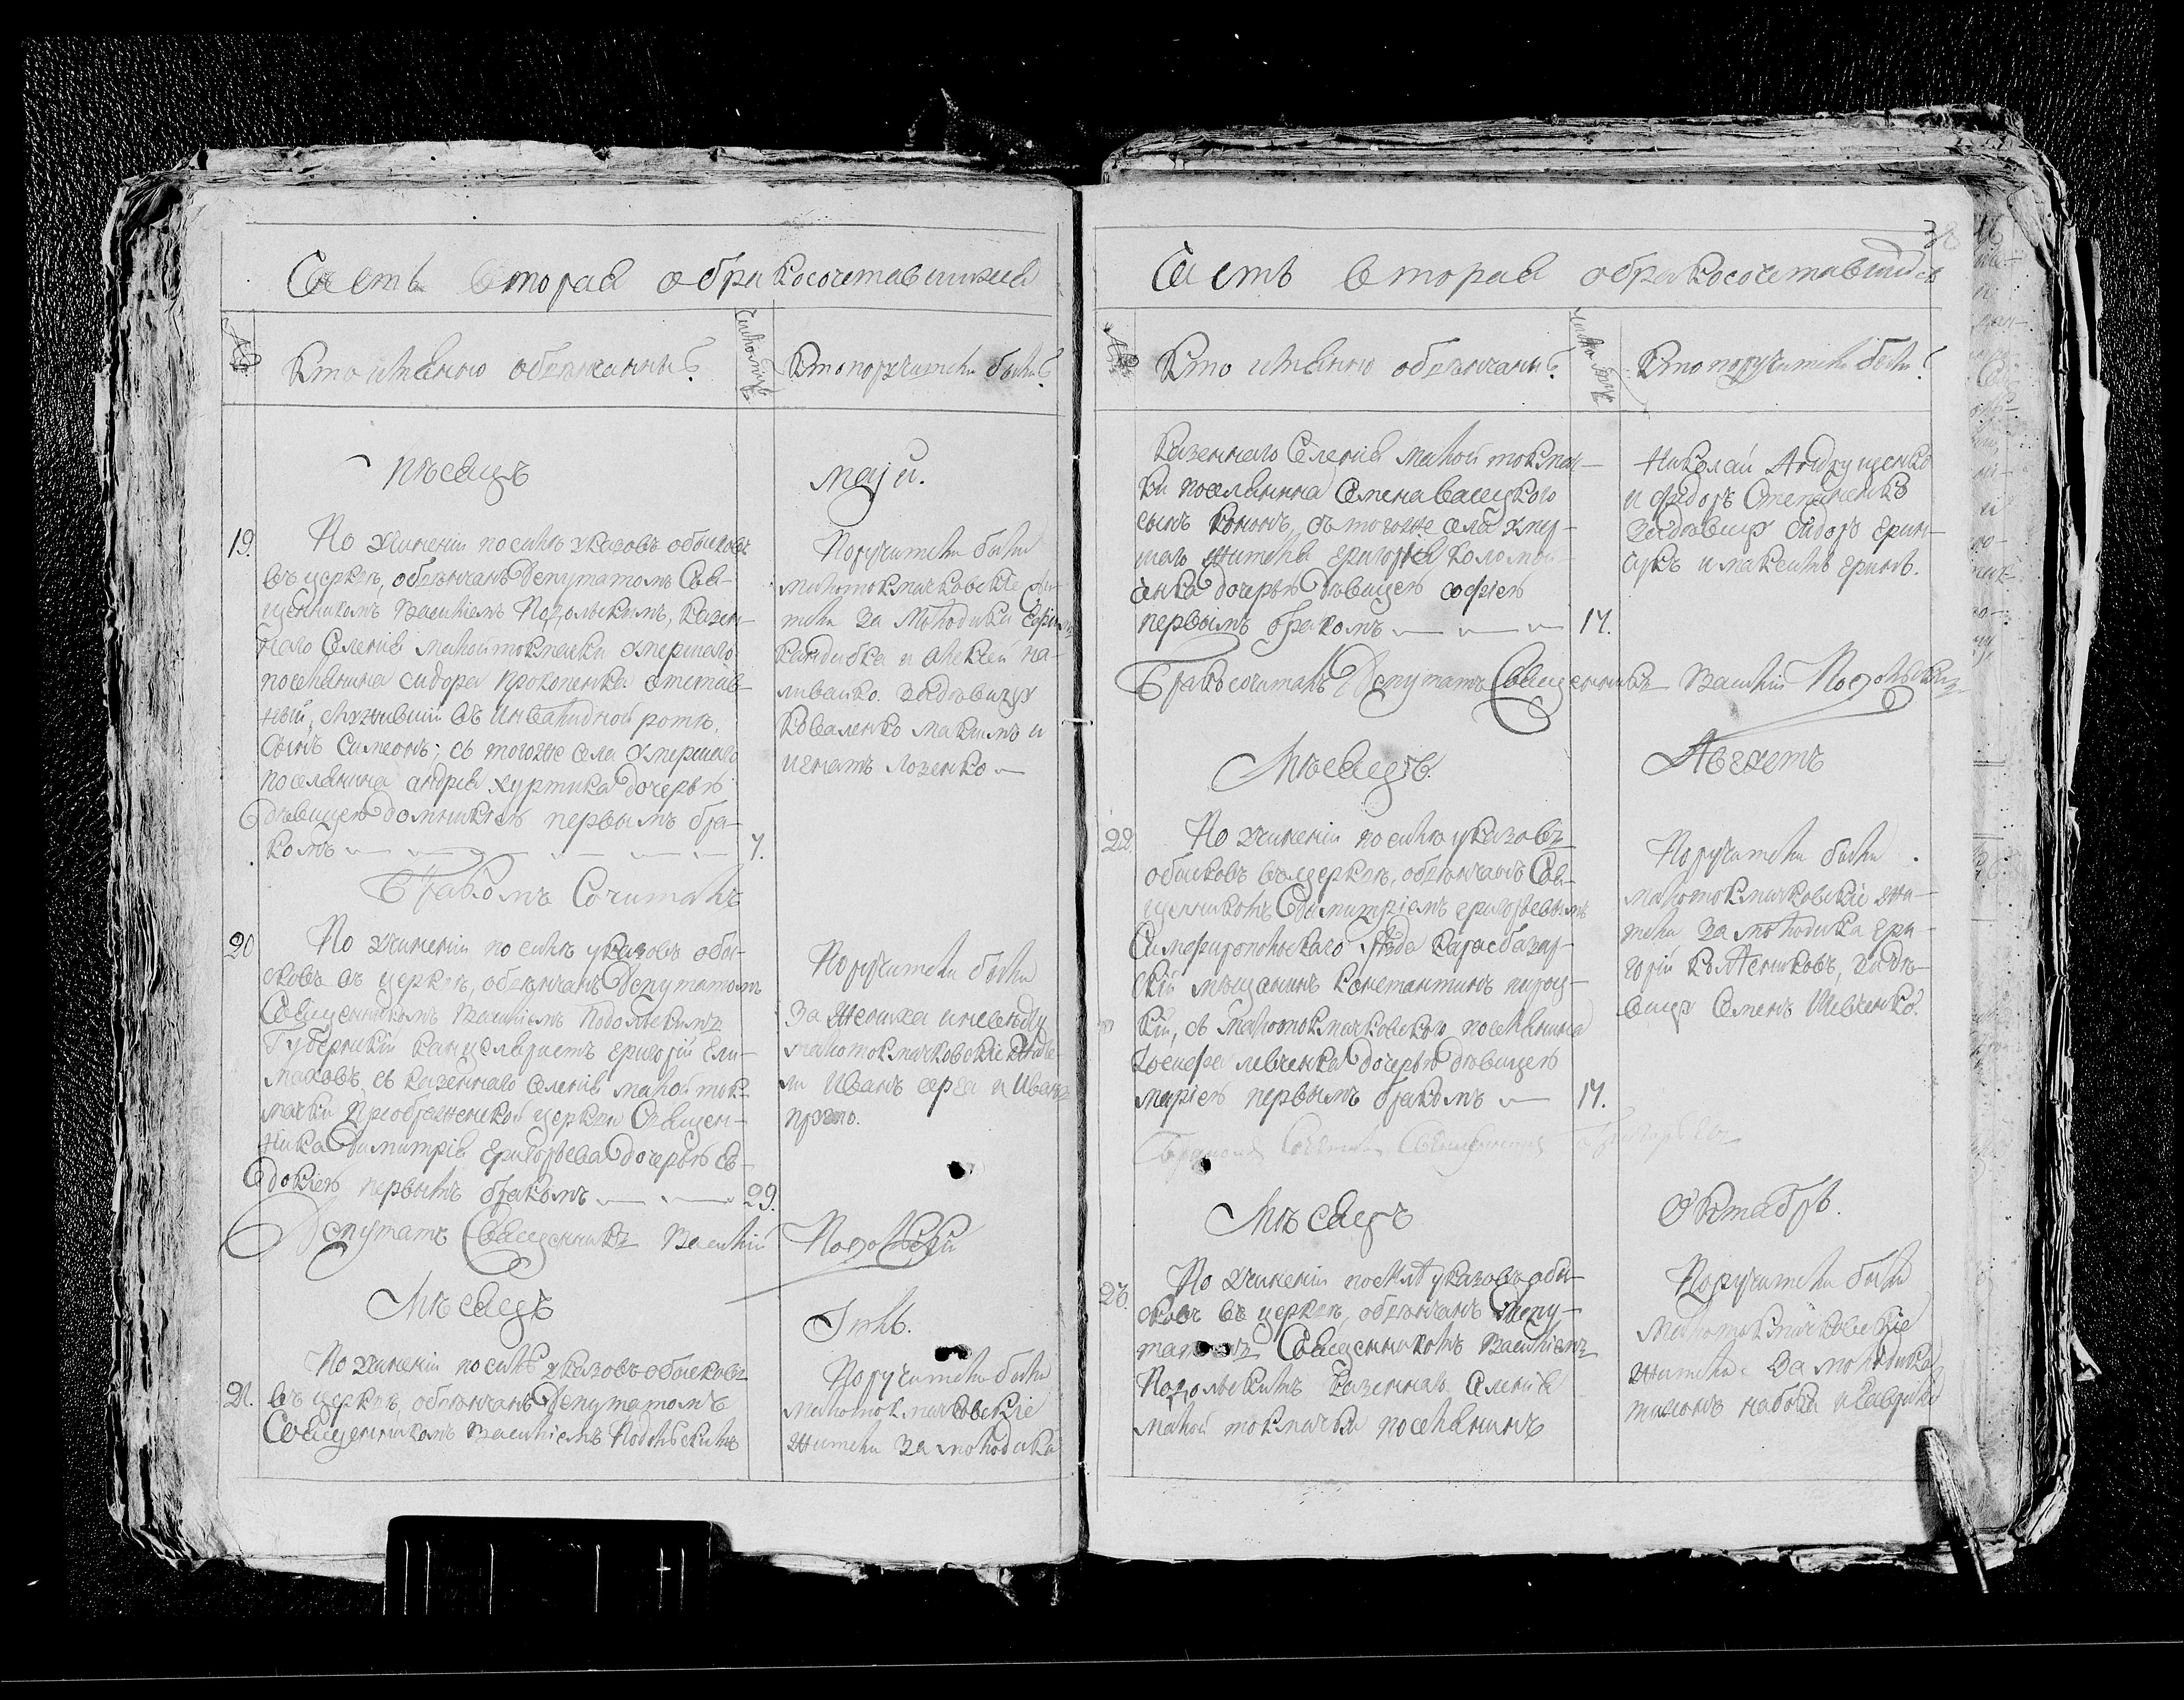 Часть вторая обракосочетавшихся
№
Кто имянно обвенчаны?
Число браковъ
Кто поручители были?
Месяцъ
маія.
19.
По учиненіи по силе указовъ обысковъ
въ церкви, обвенчанъ Депутатомъ Свя-
щенникомъ Василіемъ Подольскимъ, казен-
наго Селенія малой токмачки умершаго
поселянина сидора прокопенка отстав-
ный, служившій въ инвалидной роте,
сынъ Симеонъ; съ тогоже села умершаго
поселянина андрея куртика дочерью
девицею домникіею первымъ бра-
комъ
7.
Поручители были
малотокмачковскіе жи-
тели за молодика
кандибка и алексей на-
ливайко. за девицу
коваленко максимъ и
игнатъ лозенко
Бракомъ Сочиталъ
20
По учиненіи по силе указовъ обы-
сковъ въ церкви, обвенчанъ Депутатомъ
Священникомъ Василіемъ Подольскимъ
Губернскій канцеляристъ григорій Ели-
маховъ, съ казеннаго Селенія малой ток-
мачки Преображенской церкви Священ-
ника Димитрія григорьева дочерью Ев-
докіею первымъ бракомъ
29.
Поручители были
За жениха и невесту
малотокмачковскіе жите-
ли Иванъ серга и Иванъ
Депутатъ Священникъ Василій Подольскій
Месяцъ
Іюль.
21.
По учиненіи по силе указовъ обысковъ
въ церкви, обвенчанъ Депутатомъ
Священникомъ Василіемъ Подольскимъ
Поручители были
малотокмачковскіе
жители за молодика
Часть вторая обракосочетавшихся
№
Кто имянно обвенчаны?
Число браковъ
Кто поручители были?
казеннаго Селенія малой токмач-
ки поселянина Семена васецкого
сынъ кононъ, съ тогоже села умер-
шаго жителя григорія коломой-
ченка дочерью девицею софіею
первымъ бракомъ
17.
Николай Андрущенко
и федоръ Степаненко
за девицу сидоръ грин-
цукъ и максимъ гринь.
Бракъ сочиталъ Депутатъ Священникъ Василій Подольскій
Месяцъ.
Августъ
22.
По учиненіи по силе указовъ
обысковъ въ церкви, обвенчанъ Свя-
щенникомъ Димитріемъ григорьевымъ
Симферопольскаго уезда карасбазар-
скій мещанинъ константинъ
съ малотокмачковского поселянина
іосифа левченка дочерью девицею
маріею первымъ бракомъ
17.
Поручители были
малотокмачковскіе жи-
тели за молодика гри-
горій колесниковъ, за де-
вицу Семенъ Шевченко.
Бракомъ Священникъ
Месяцъ
Октябрь.
23.
По учиненіи по силе указовъ обы-
сковъ въ церкви, обвенчанъ Депу-
татомъ Священникомъ Василіемъ
Подольскимъ казеннаго Селенія
малой токмачки поселянинъ
Поручители были
малотокмачковскіе
жители за молодика
набока и гаврило